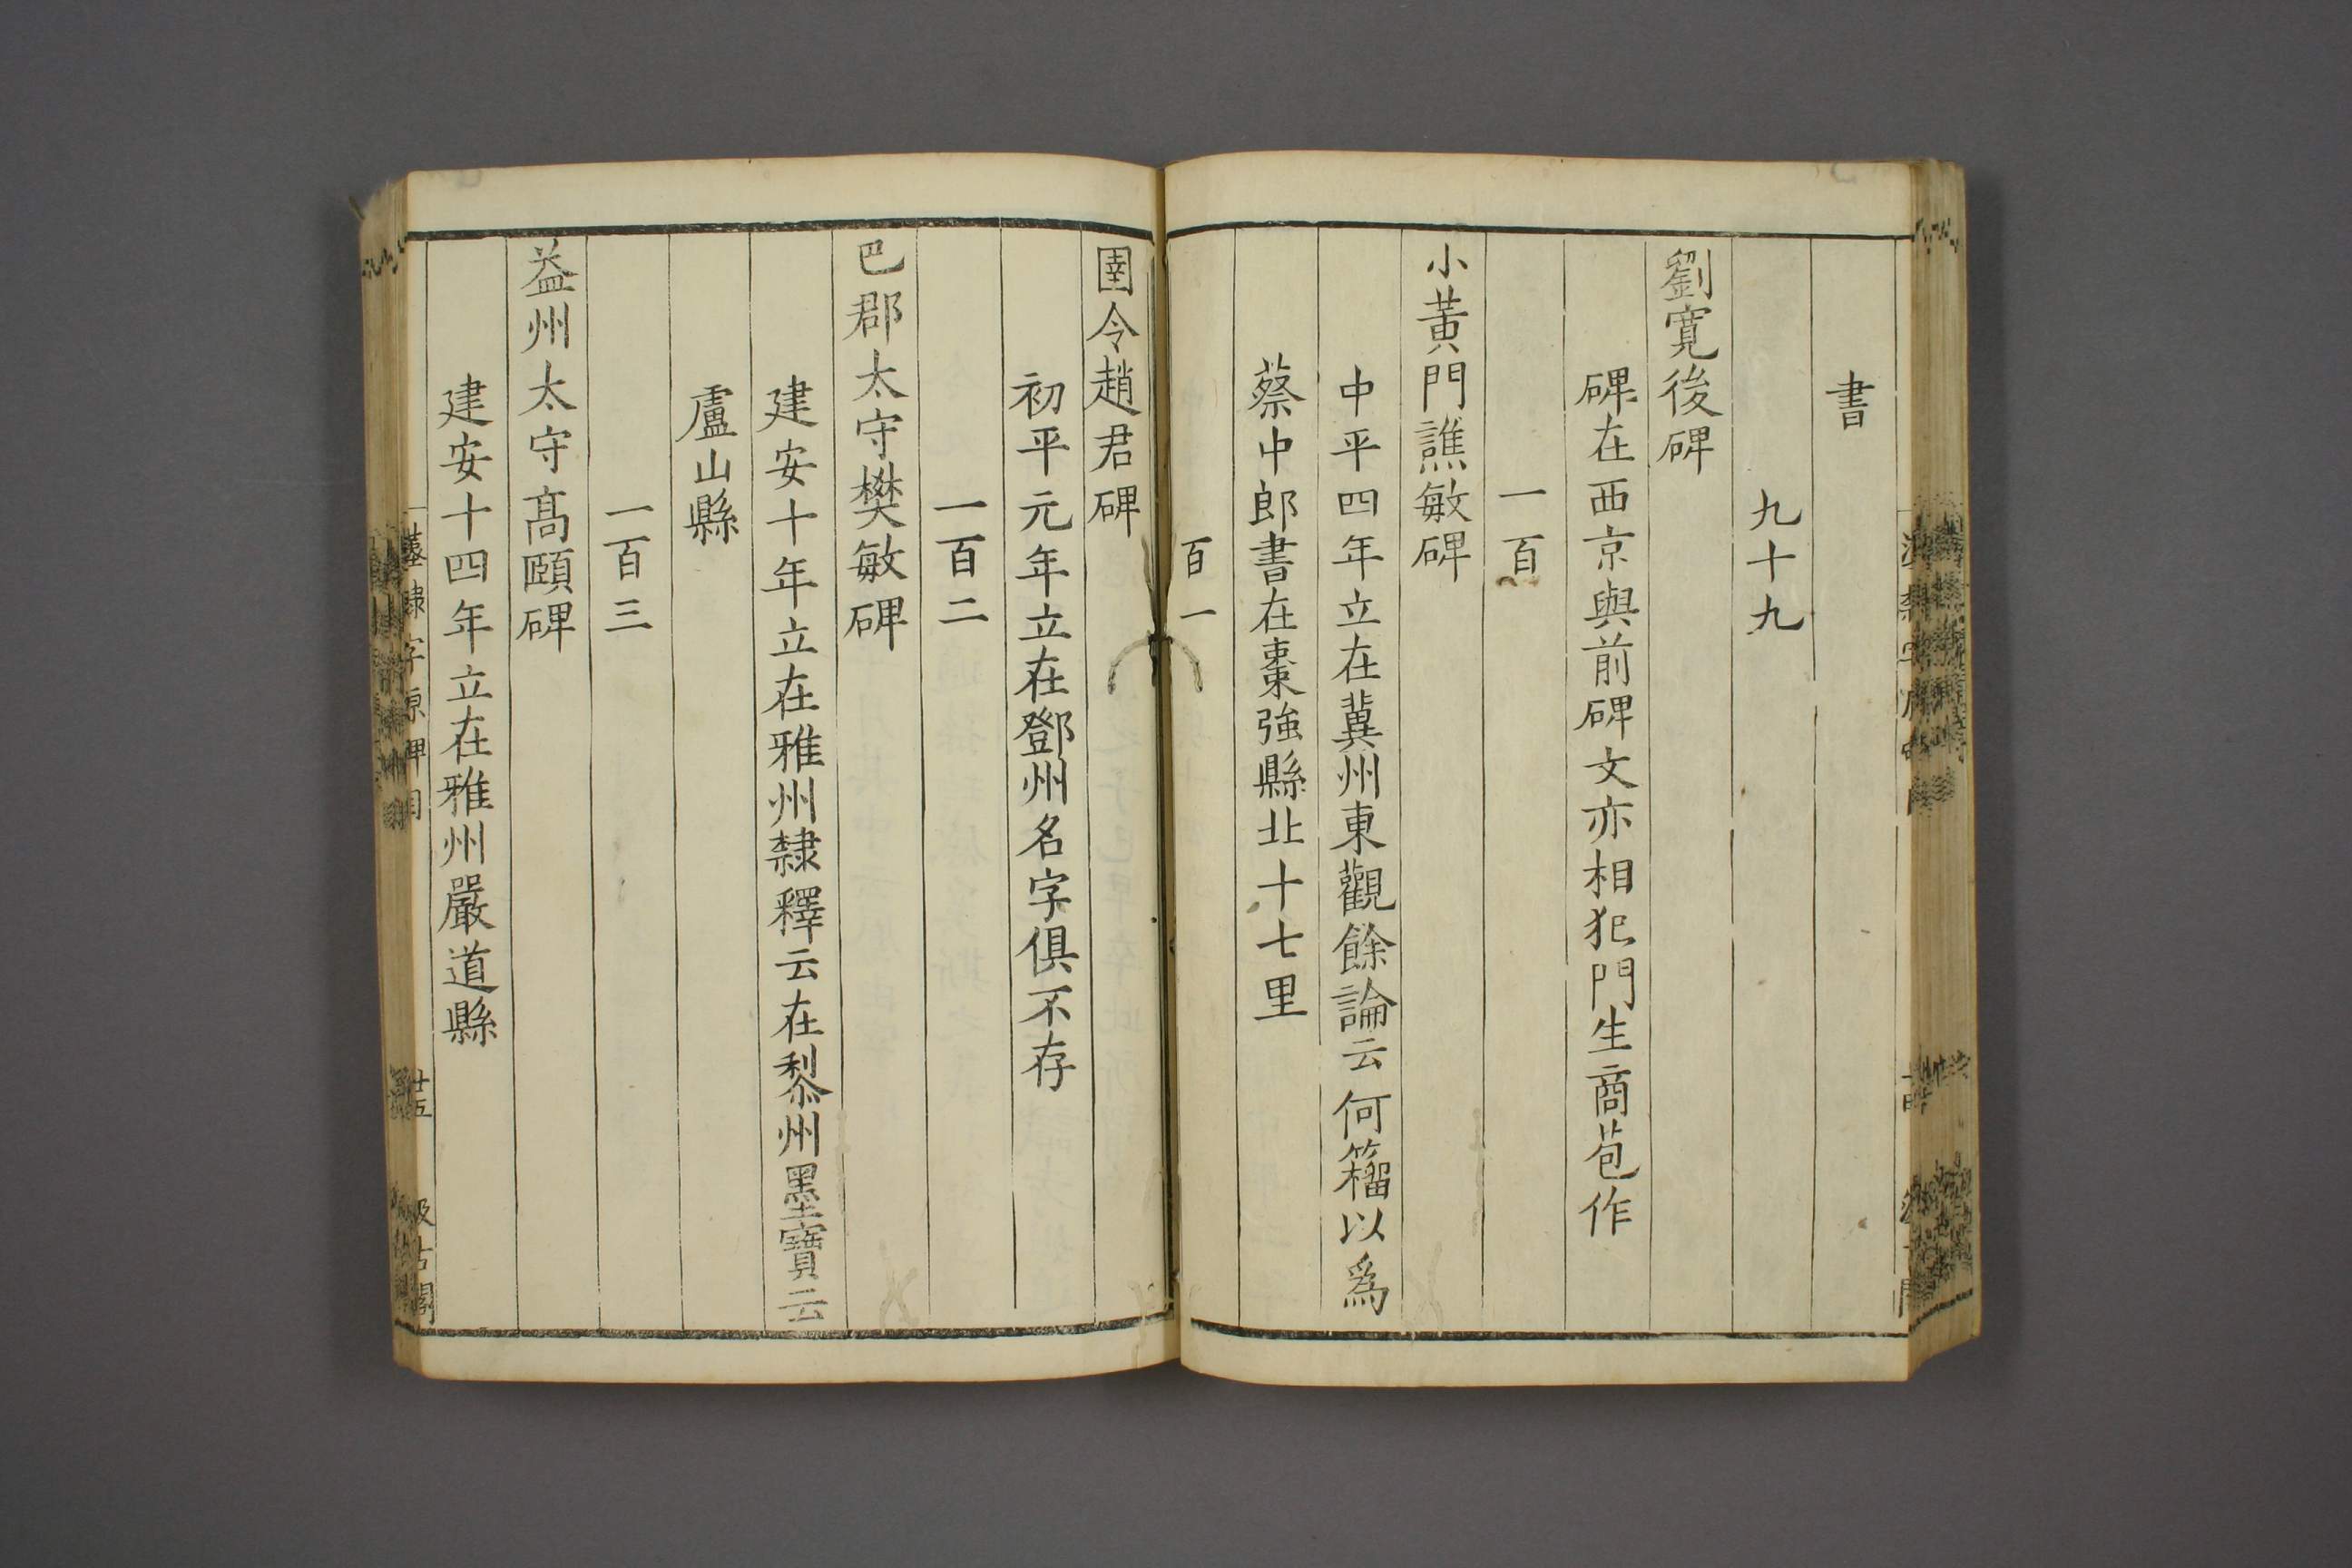 書
九十九
劉寬後碑
碑在西京與前碑文亦相犯門生商苞作
一百
小黃門譙敏碑
中平四年立在冀州東觀餘論云何籀以爲
蔡中郎書在棗強縣北十七里
百一
圉令趙君碑
初平元年立在鄧州名字俱不存
一百二
巴郡太守樊敏碑
建安十年立在雅州隸釋云在黎州墨寶云
盧山縣
一百三
益州太守髙頤碑
建安十四年立在雅州嚴道縣
隸字原碑目
廿五
汲古閣